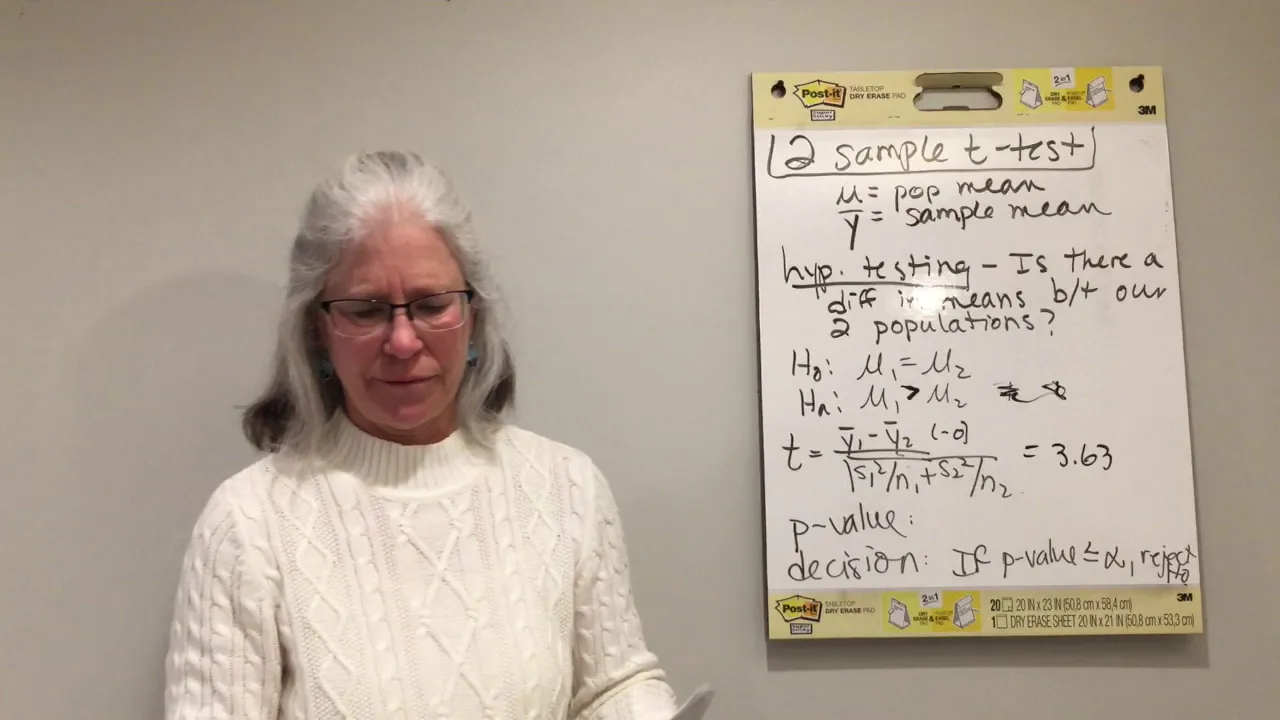 Post-it
Super Sticky
TABLETOP
DRY ERASE PAD
2 in 1
DRY ERASE PAD
&
3M
2 sample t-test
μ = pop mean
ȳ = sample mean
hyp. testing - Is there a
diff in means b/t our
2 populations?
H₀: μ₁ = μ₂
Ha: μ₁ > μ₂
t = ȳ₁ - ȳ₂ (-0) / √s₁²/n₁ + s₂²/n₂ = 3.63
p-value:
decision: If p-value ≤ α, reject H₀
Post-it
Super Sticky
TABLETOP
DRY ERASE PAD
2 in 1
DRY ERASE PAD
&
20 20 IN x 23 IN (50,8 cm x 58,4 cm)
1 DRY ERASE SHEET 20 IN x 21 IN (50,8 cm x 53,3 cm)
3M